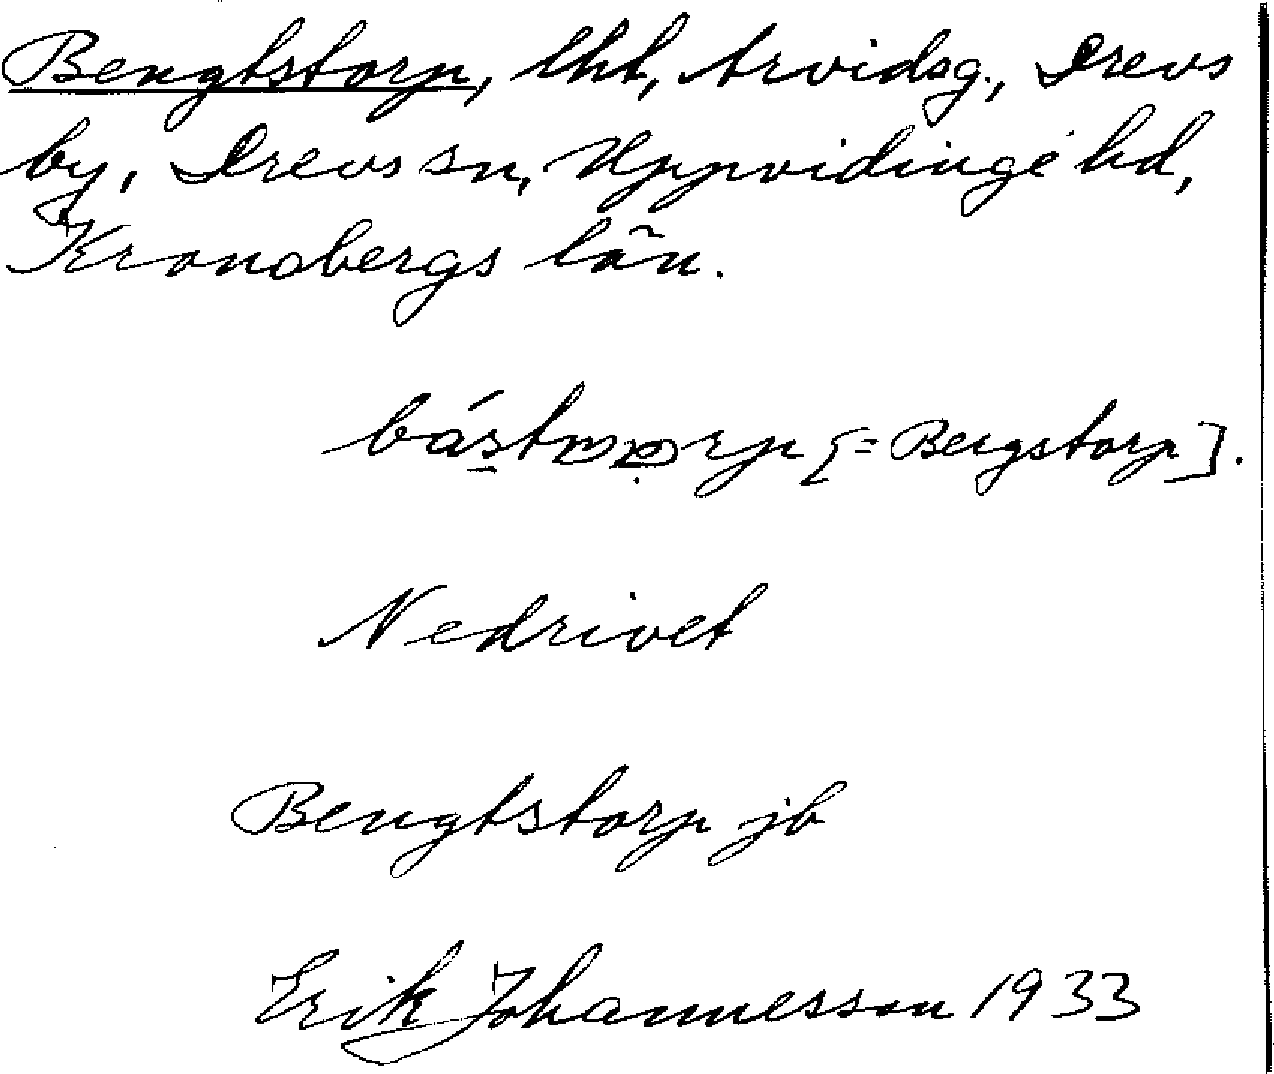 Bengtstorp, lht, Arvidsg., Drevs
by, Drevs sn, Uppvidinge hd,
Kronobergs län.
[= Bergstorp].
Nedrivet
Bengtstorp jb
Erik Johannesson 1933